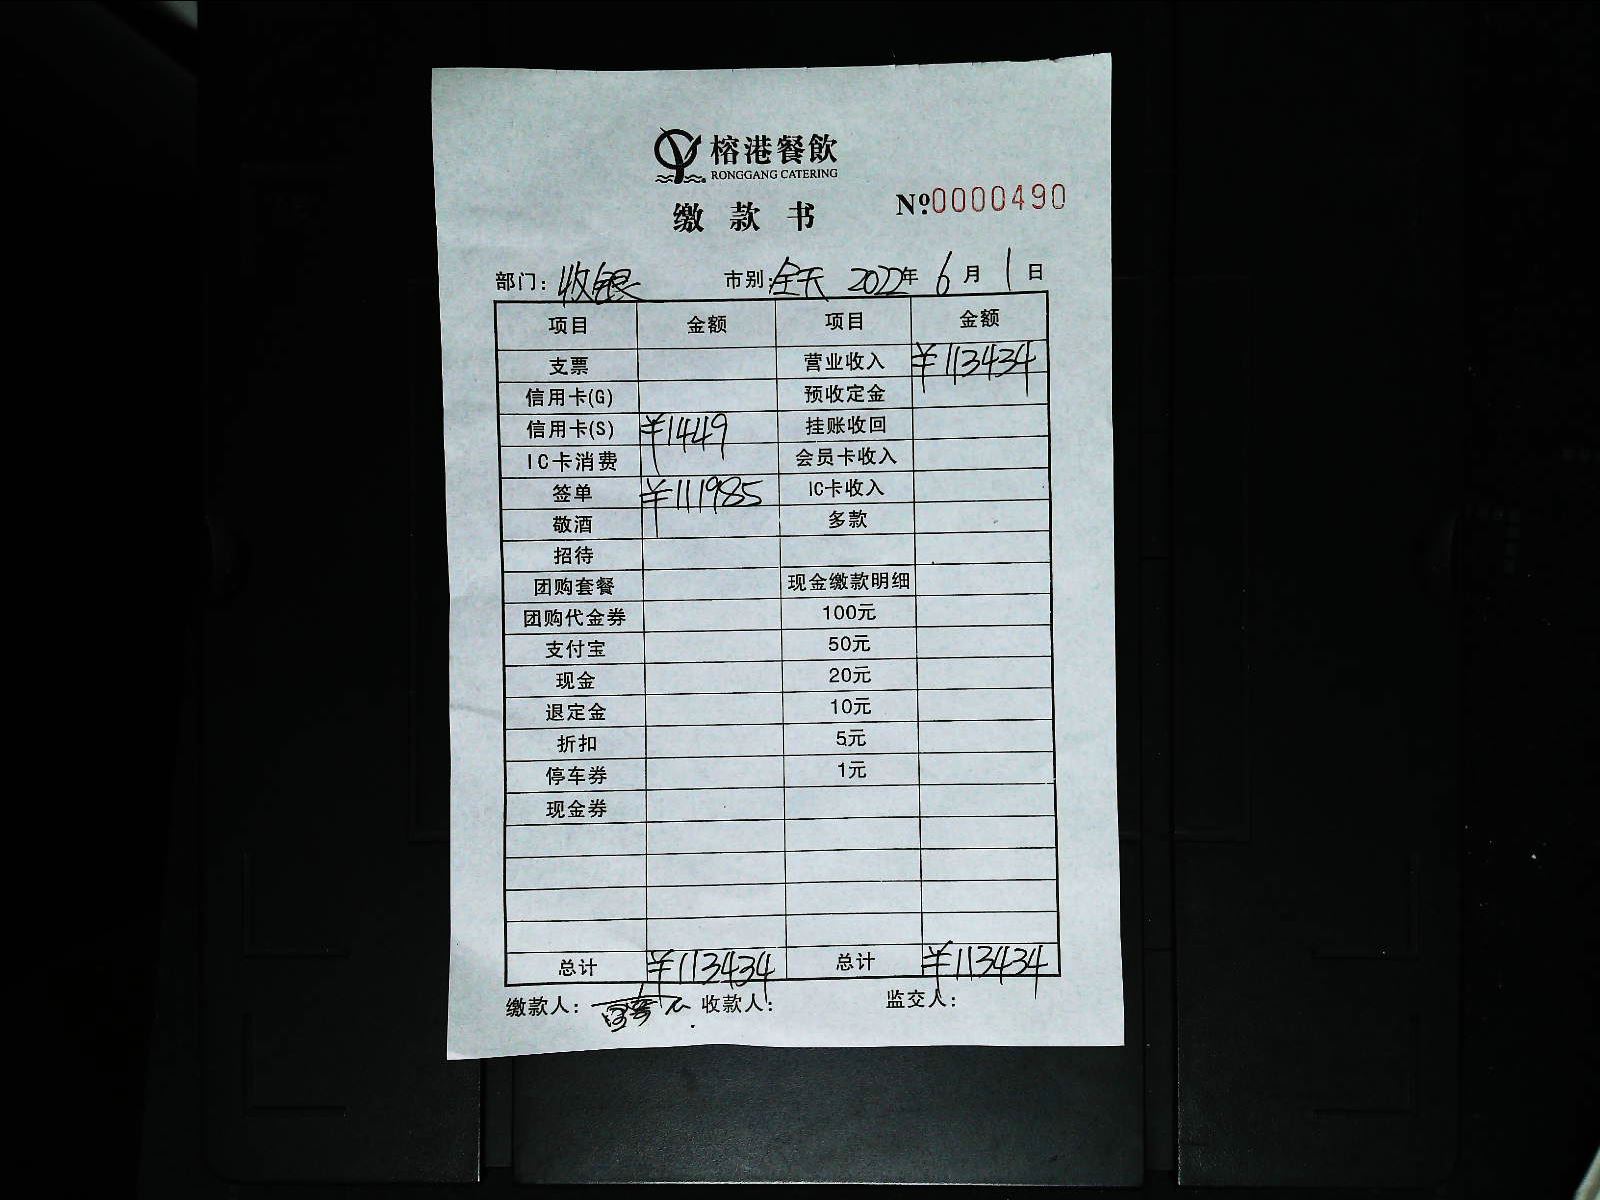 榕港餐飲
RONGGANG CATERING
缴款书 №0000490
部门：收银 市别：全天 2022年 6月 1日
项目 金额 项目 金额
支票 营业收入 ¥113434
信用卡(G) 预收定金
信用卡(S) ¥1449 挂账收回
IC卡消费 会员卡收入
签单 ¥111985 IC卡收入
敬酒 多款
招待
团购套餐 现金缴款明细
团购代金券 100元
支付宝 50元
现金 20元
退定金 10元
折扣 5元
停车券 1元
现金券
总计 ¥113434 总计 ¥113434
缴款人： 收款人： 监交人：